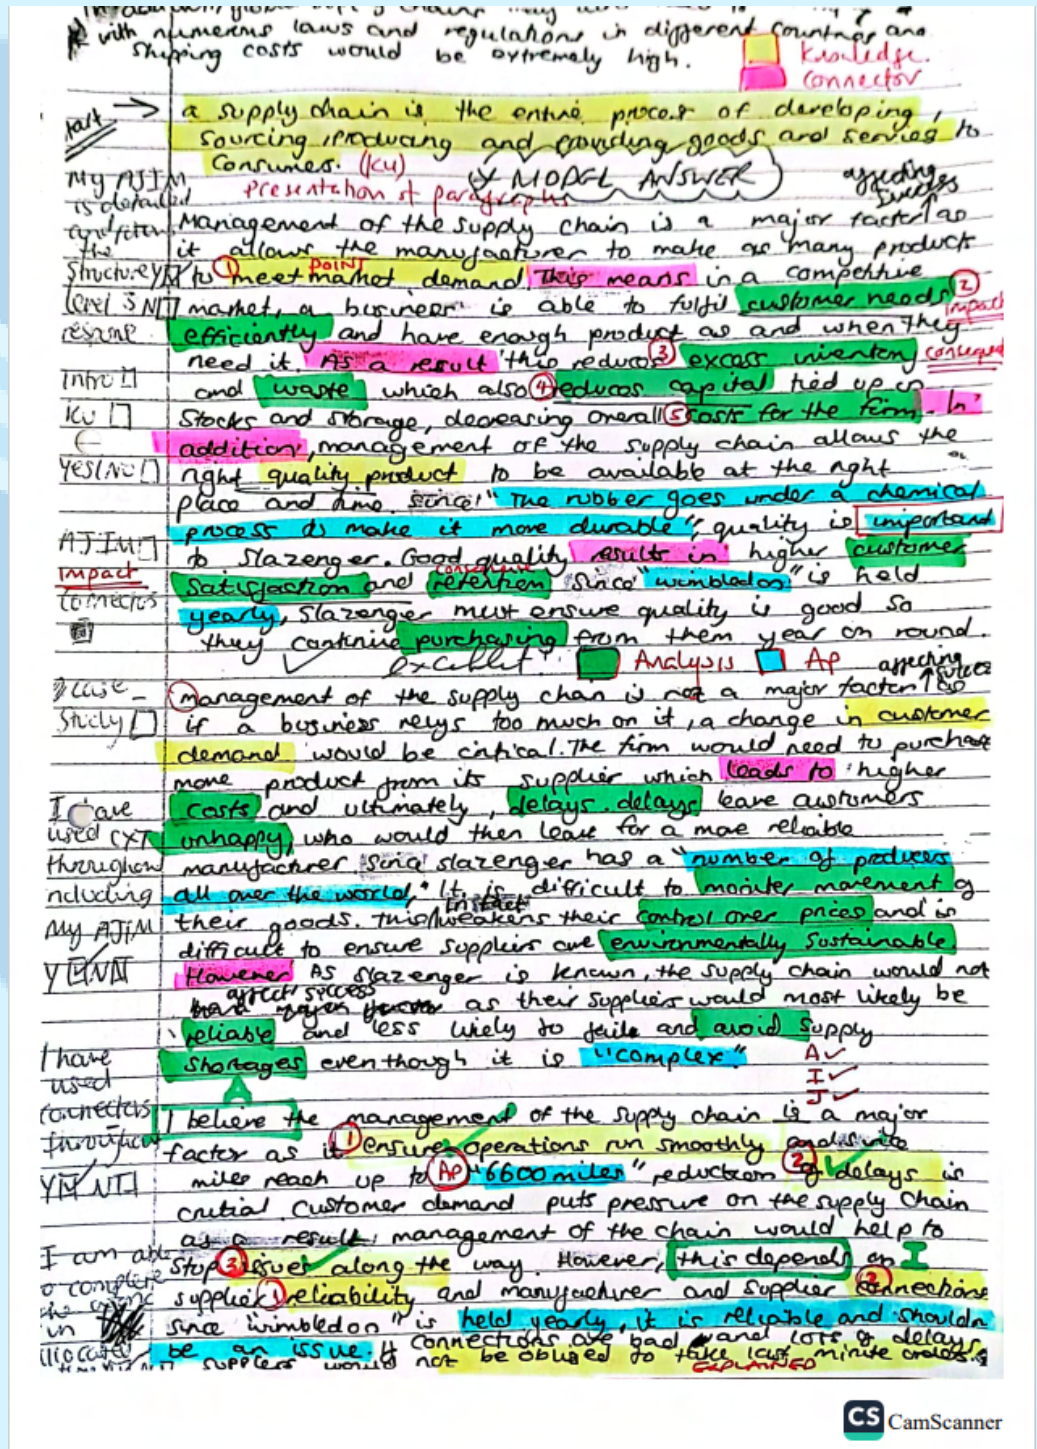 with numerous laws and regulations in different countries and
shipping costs would be extremely high.
Knowledge.
connector
Start
a supply chain is the entire process of developing,
sourcing, producing and providing goods and services to
Consumers. (KU)
MODEL ANSWER
affecting
success
Presentation of paragraphs
My AJIM
is detailed
Management of the supply chain is a major factor as
the
it allows the manufacturer to make as many products
Structure Y
to ① meet market demand This means in a competitive
POINT
level 3 N
market, a business is able to fulfil customer needs ②
impact
response
efficiently and have enough product as and when they
need it. As a result this reduces ③ excess inventory
Intro
and waste which also ④ reduces capital tied up in
KU
Stocks and storage, decreasing overall ⑤ costs for the firm. In
addition, management of the supply chain allows the
Yes/No
right quality product to be available at the right
place and time. since "The rubber goes under a chemical
process to make it more durable", quality is important
AJIM
to Slazenger. Good quality results in higher customer
Impact
satisfaction and retention since "wimbledon" is held
Connectors
yearly, Slazenger must ensure quality is good so
they continue purchasing from them year on round.
excellent
Analysis
Ap
affecting
success
Case
Management of the supply chan is not a major factor as
Study
if a business relys too much on it, a change in customer
demand would be critical. The firm would need to purchase
more product from its supplier which leads to higher
I have
costs and ultimately, delays. delays leave customers
used CXT
unhappy, who would then leave for a more reliable
throughout
manufacturer. Since slazenger has a "number of producers
including
all over the world," It is difficult to moniter movement of
in fact
my AJIM
their goods. This weakens their control over prices and is
difficult to ensure suppliers are environmentally sustainable.
Y N
However As slazenger is known, the supply chain would not
affect success
as their suppliers would most likely be
reliable and less likely to faile and avoid supply
I have
shortages eventhough it is "complex"
used
A
I
J
A
connectors
I believe the management of the supply chain is a major
throughout
factor as it ① ensures operations run smoothly
Y N
miles reach up to Ap "6600 miles" reduction ② of delays is
crutial. Customer demand puts pressure on the supply chain
as a result, management of the chain would help to
I am able
stop ③ issues along the way. However, this depends on
I
to complete
supplier ① reliability and manufacturer and supplier ② connections
in
since wimbledon" is held yearly, it is reliable and shouldn
be an issue. If connections are bad and lots of delays,
suppliers would not be obliged to take last minute orders.
EXPLAINED
CS CamScanner